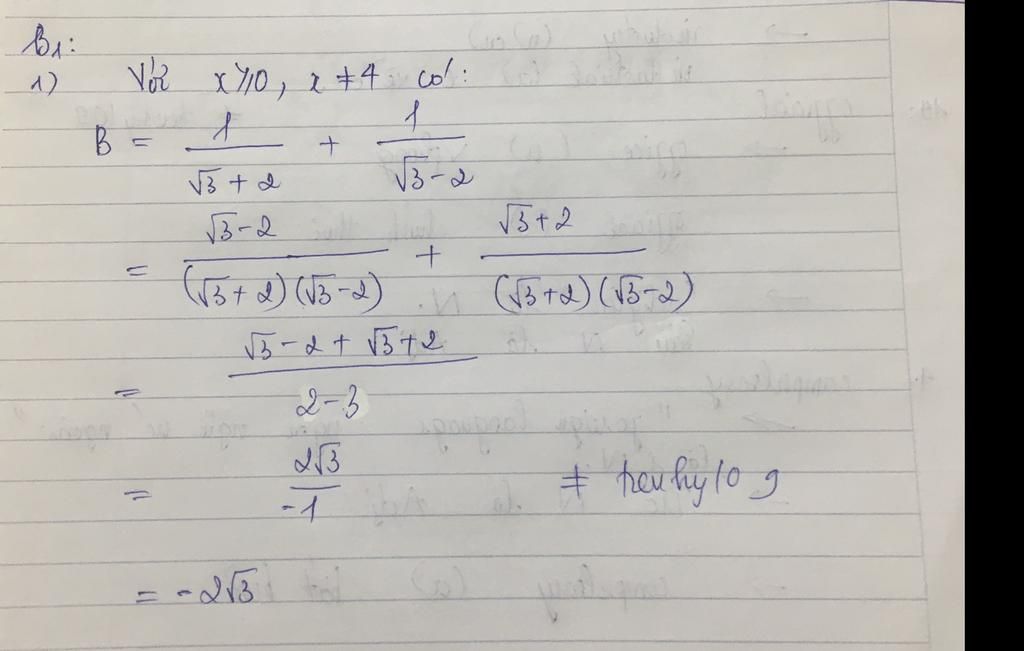 B1:
1) Với x ≥ 0, x ≠ 4 có:
B = 1/(√3 + 2) + 1/(√3 - 2)
= (√3 - 2)/((√3 + 2)(√3 - 2)) + (√3 + 2)/((√3 + 2)(√3 - 2))
= (√3 - 2 + √3 + 2)/(2 - 3)
= 2√3/-1 ≠
= -2√3